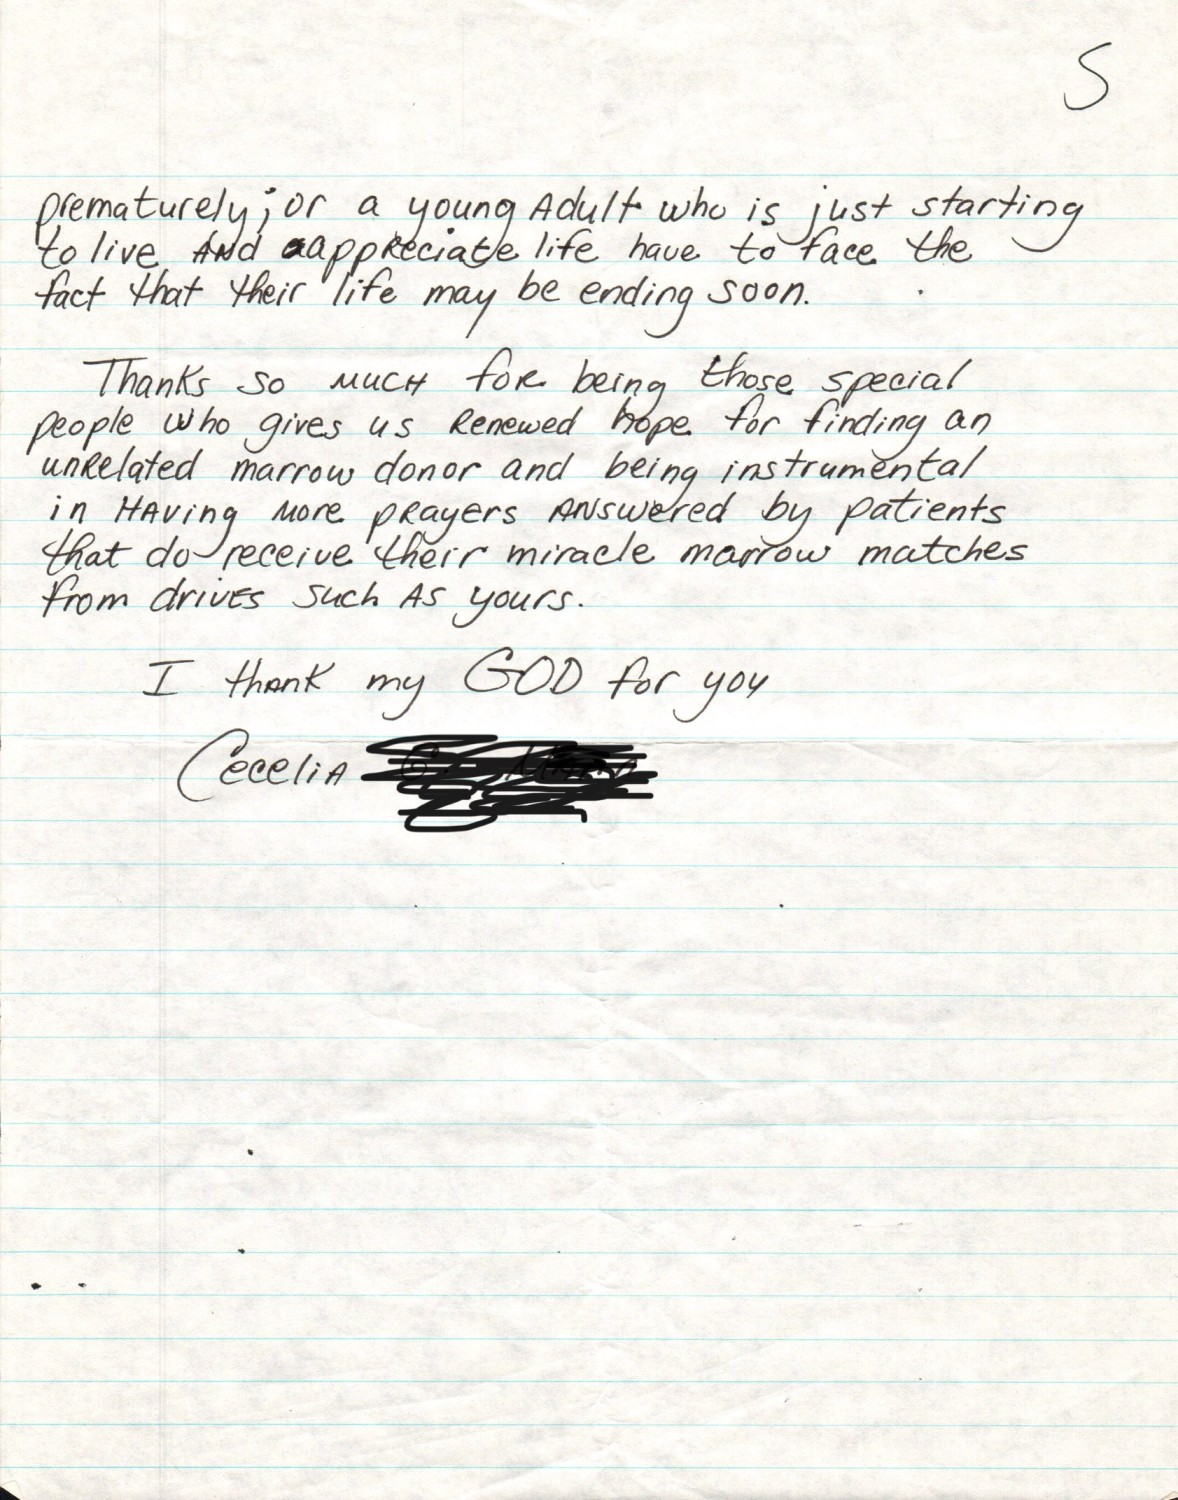 5
prematurely; or a young Adult who is just starting
to live AND appreciate life have to face the
fact that their life may be ending soon.
Thanks so much for being those special
people who gives us Renewed hope for finding an
unRelated marrow donor and being instrumental
in HAving More pRayers ANSwered by patients
that do receive their miracle marrow matches
from drives such As yours.
I thank my GOD for you
Cecelia